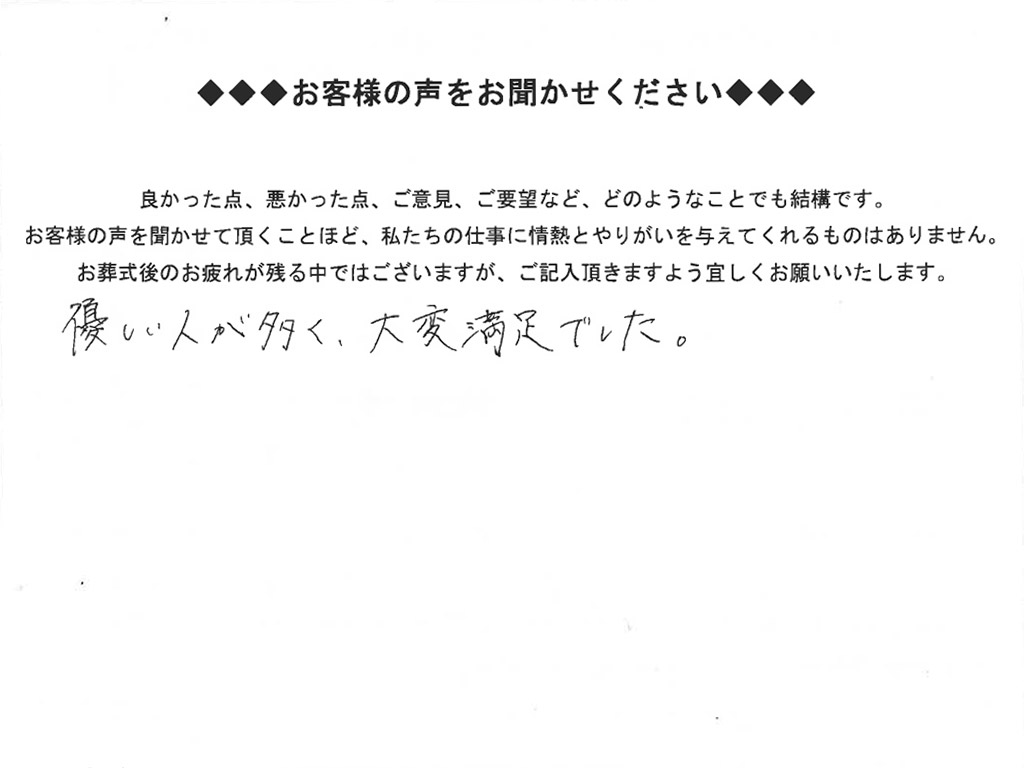 ◆◆◆お客様の声をお聞かせください◆◆◆
良かった点、悪かった点、ご意見、ご要望など、どのようなことでも結構です。
お客様の声を聞かせて頂くことほど、私たちの仕事に情熱とやりがいを与えてくれるものはありません。
お葬式後のお疲れが残る中ではございますが、ご記入頂きますよう宜しくお願いいたします。
優しい人が多く、大変満足でした。